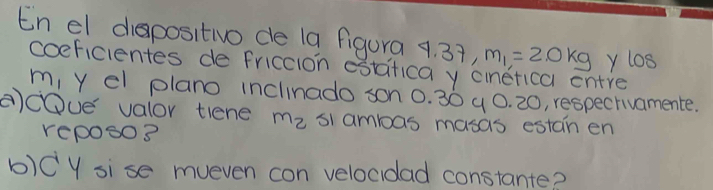 En el diapositivo de la figura 4.37, m₁ = 2.0 kg y los
coeficientes de fricción estática y cinética entre
m₁ y el plano inclinado son 0.30 y 0.20, respectivamente.
a) ¿Qué valor tiene m₂ si ambas masas están en
reposo?
b) ¿Y si se mueven con velocidad constante?